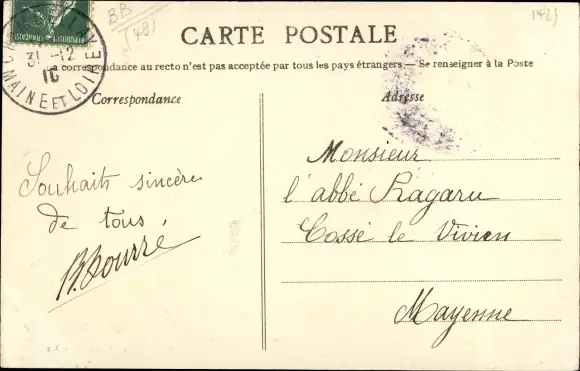 BB
(48)
142)
CARTE POSTALE
La correspondance au recto n'est pas acceptée par tous les pays étrangers. — Se renseigner à la Poste
31 -12
10
MAINE ET LOIRE
Correspondance
Adresse
Souhaits sincères
de tous,
B. Bourré
Monsieur
l'abbé Ragaru
Cossé le Vivien
Mayenne